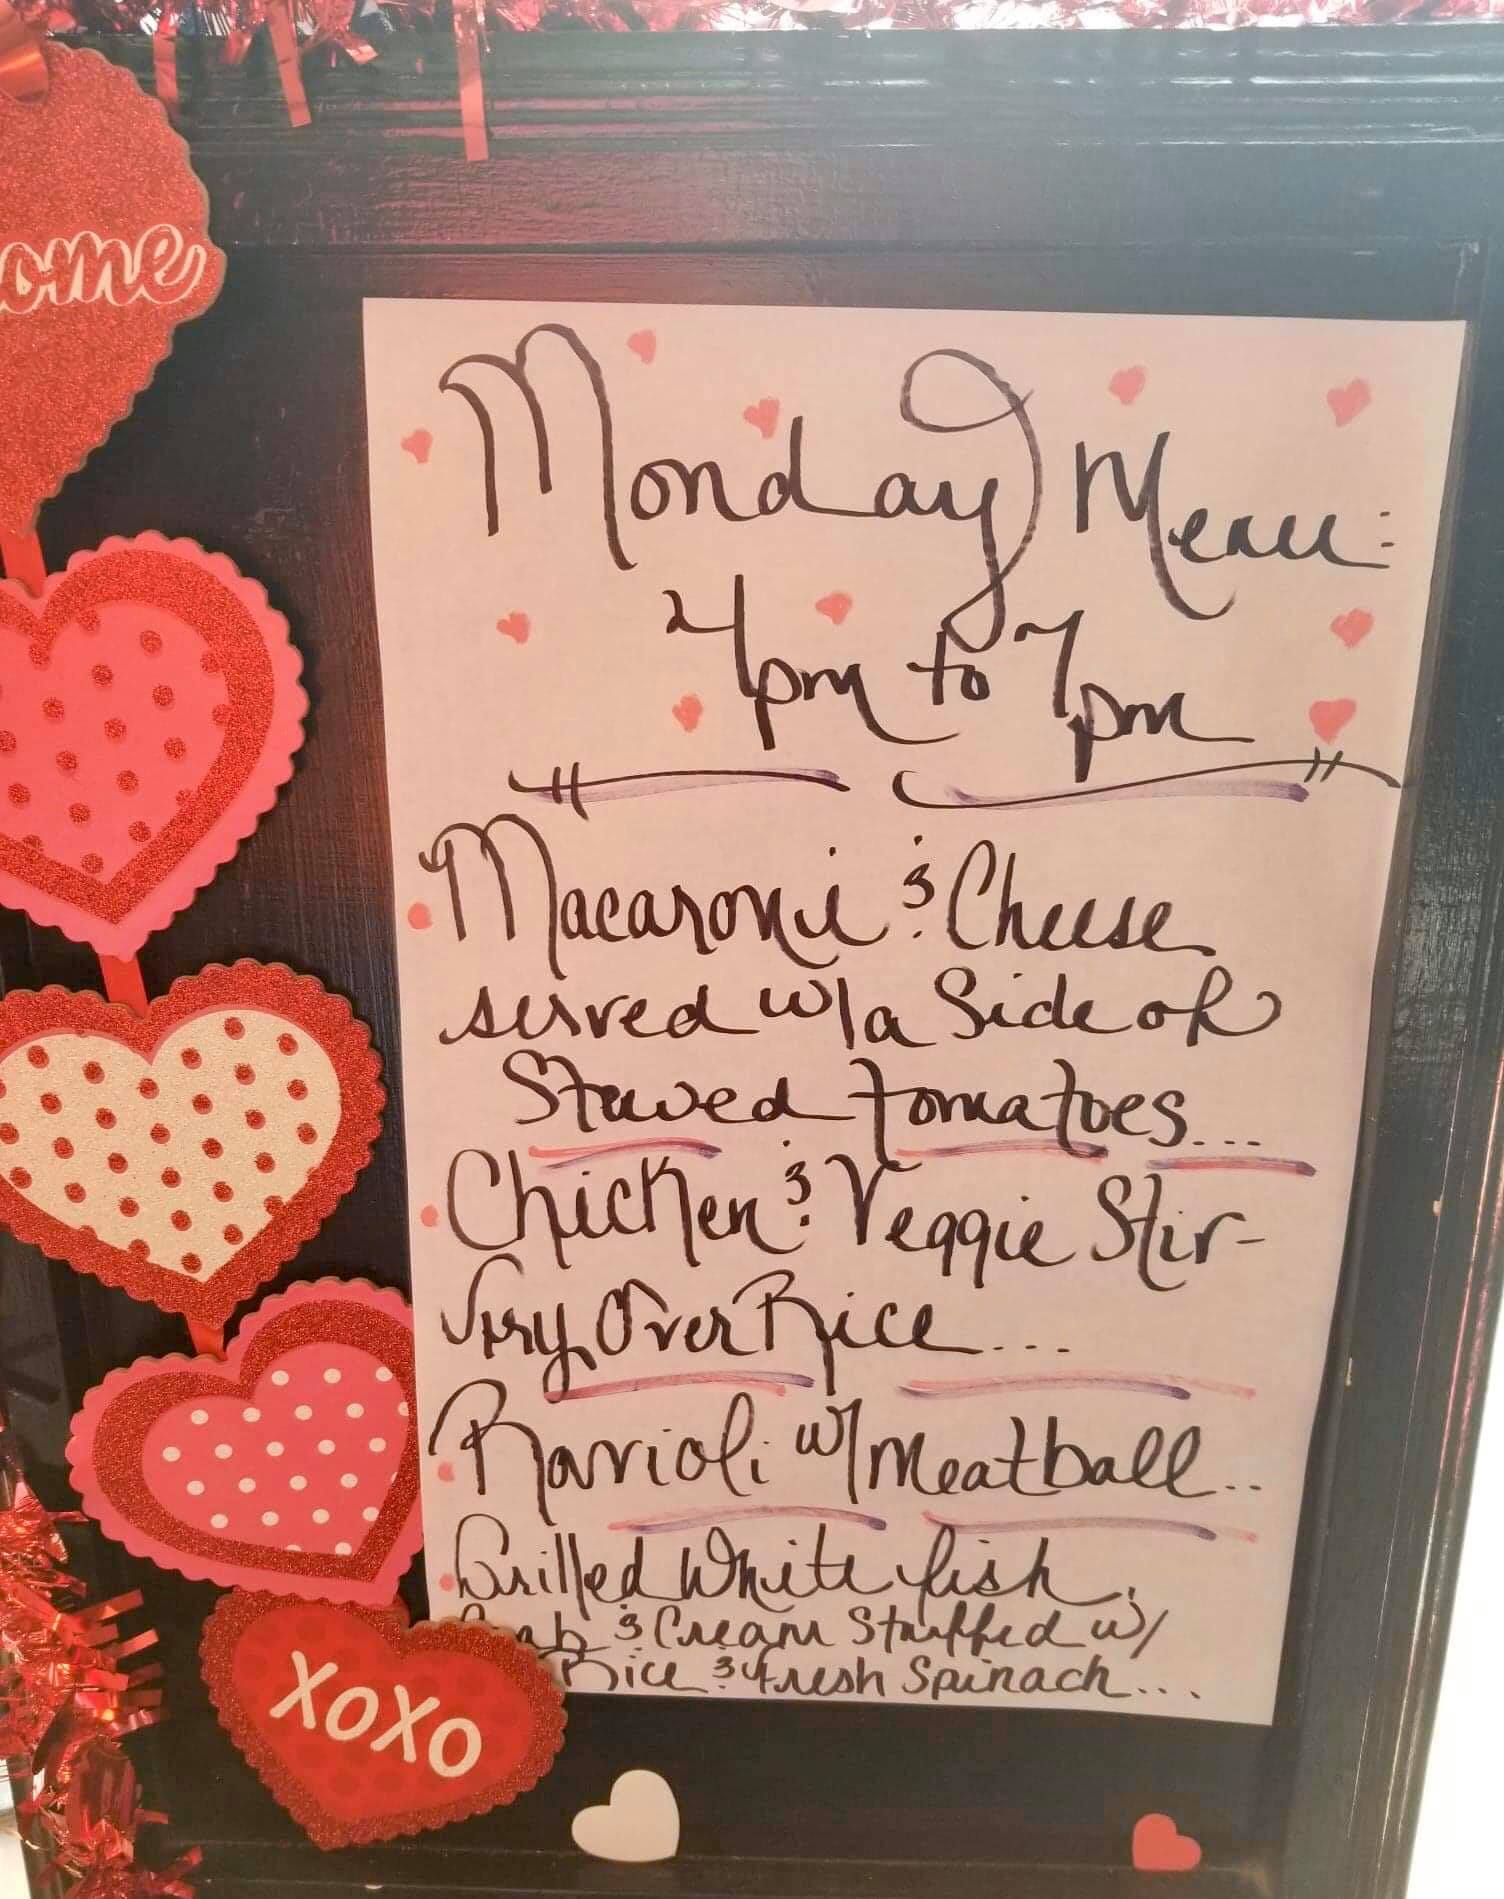 ome
Monday Menu:
4pm to 7pm
Macaroni & Cheese
served w/a Side of
Stewed tomatoes...
Chicken & Veggie Stir-
Fry Over Rice....
Ravioli w/ Meatball..
Grilled White fish,
& Cream Stuffed w/
Rice & Fresh Spinach...
XOXO